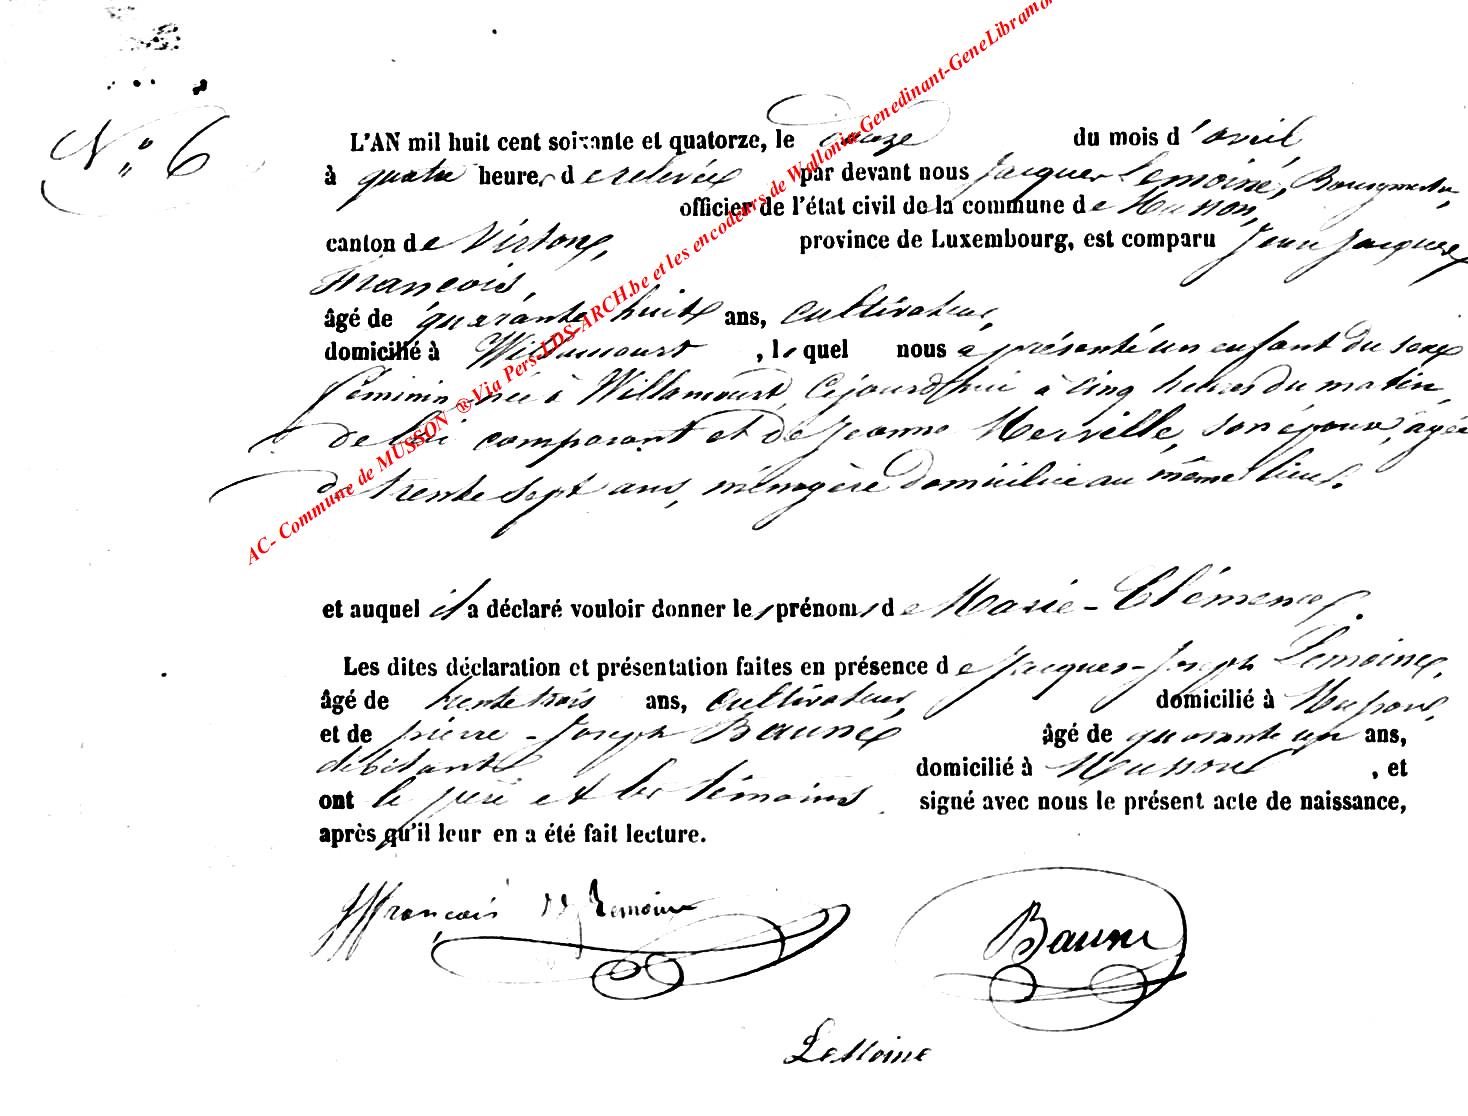 N° 6
L'AN mil huit cent soixante et quatorze, le onze du mois d'avril
à quatre heures de relevée par devant nous Jacques Lemoine, Bourgmestre,
officier de l'état civil de la commune de Musson,
canton de Virton, province de Luxembourg, est comparu Jean Jacques
François,
âgé de quarante huit ans, cultivateur,
domicilié à Willancourt, lequel nous a présenté un enfant du sexe
féminin née à Willancourt, cejourd'hui à cinq heures du matin,
de lui comparant et de Jeanne Merville, son épouse, âgée
de trente sept ans, ménagère domiciliée au même lieu.
et auquel il a déclaré vouloir donner les prénoms de Marie-Clémence.
Les dites déclaration et présentation faites en présence de Jacques-Joseph Lemoine,
âgé de trente trois ans, cultivateur, domicilié à Musson,
et de pierre-Joseph Bauné âgé de quarante un ans,
débitant domicilié à Musson, et
ont le père et les témoins signé avec nous le présent acte de naissance,
après qu'il leur en a été fait lecture.
JJfrançois JJ Lemoine
Baune
LeMoine
AC- Commune de MUSSON ® Via Pers-LDS-ARCH.be et les encodeurs de Wallonia-Genedinant-GeneLibramo